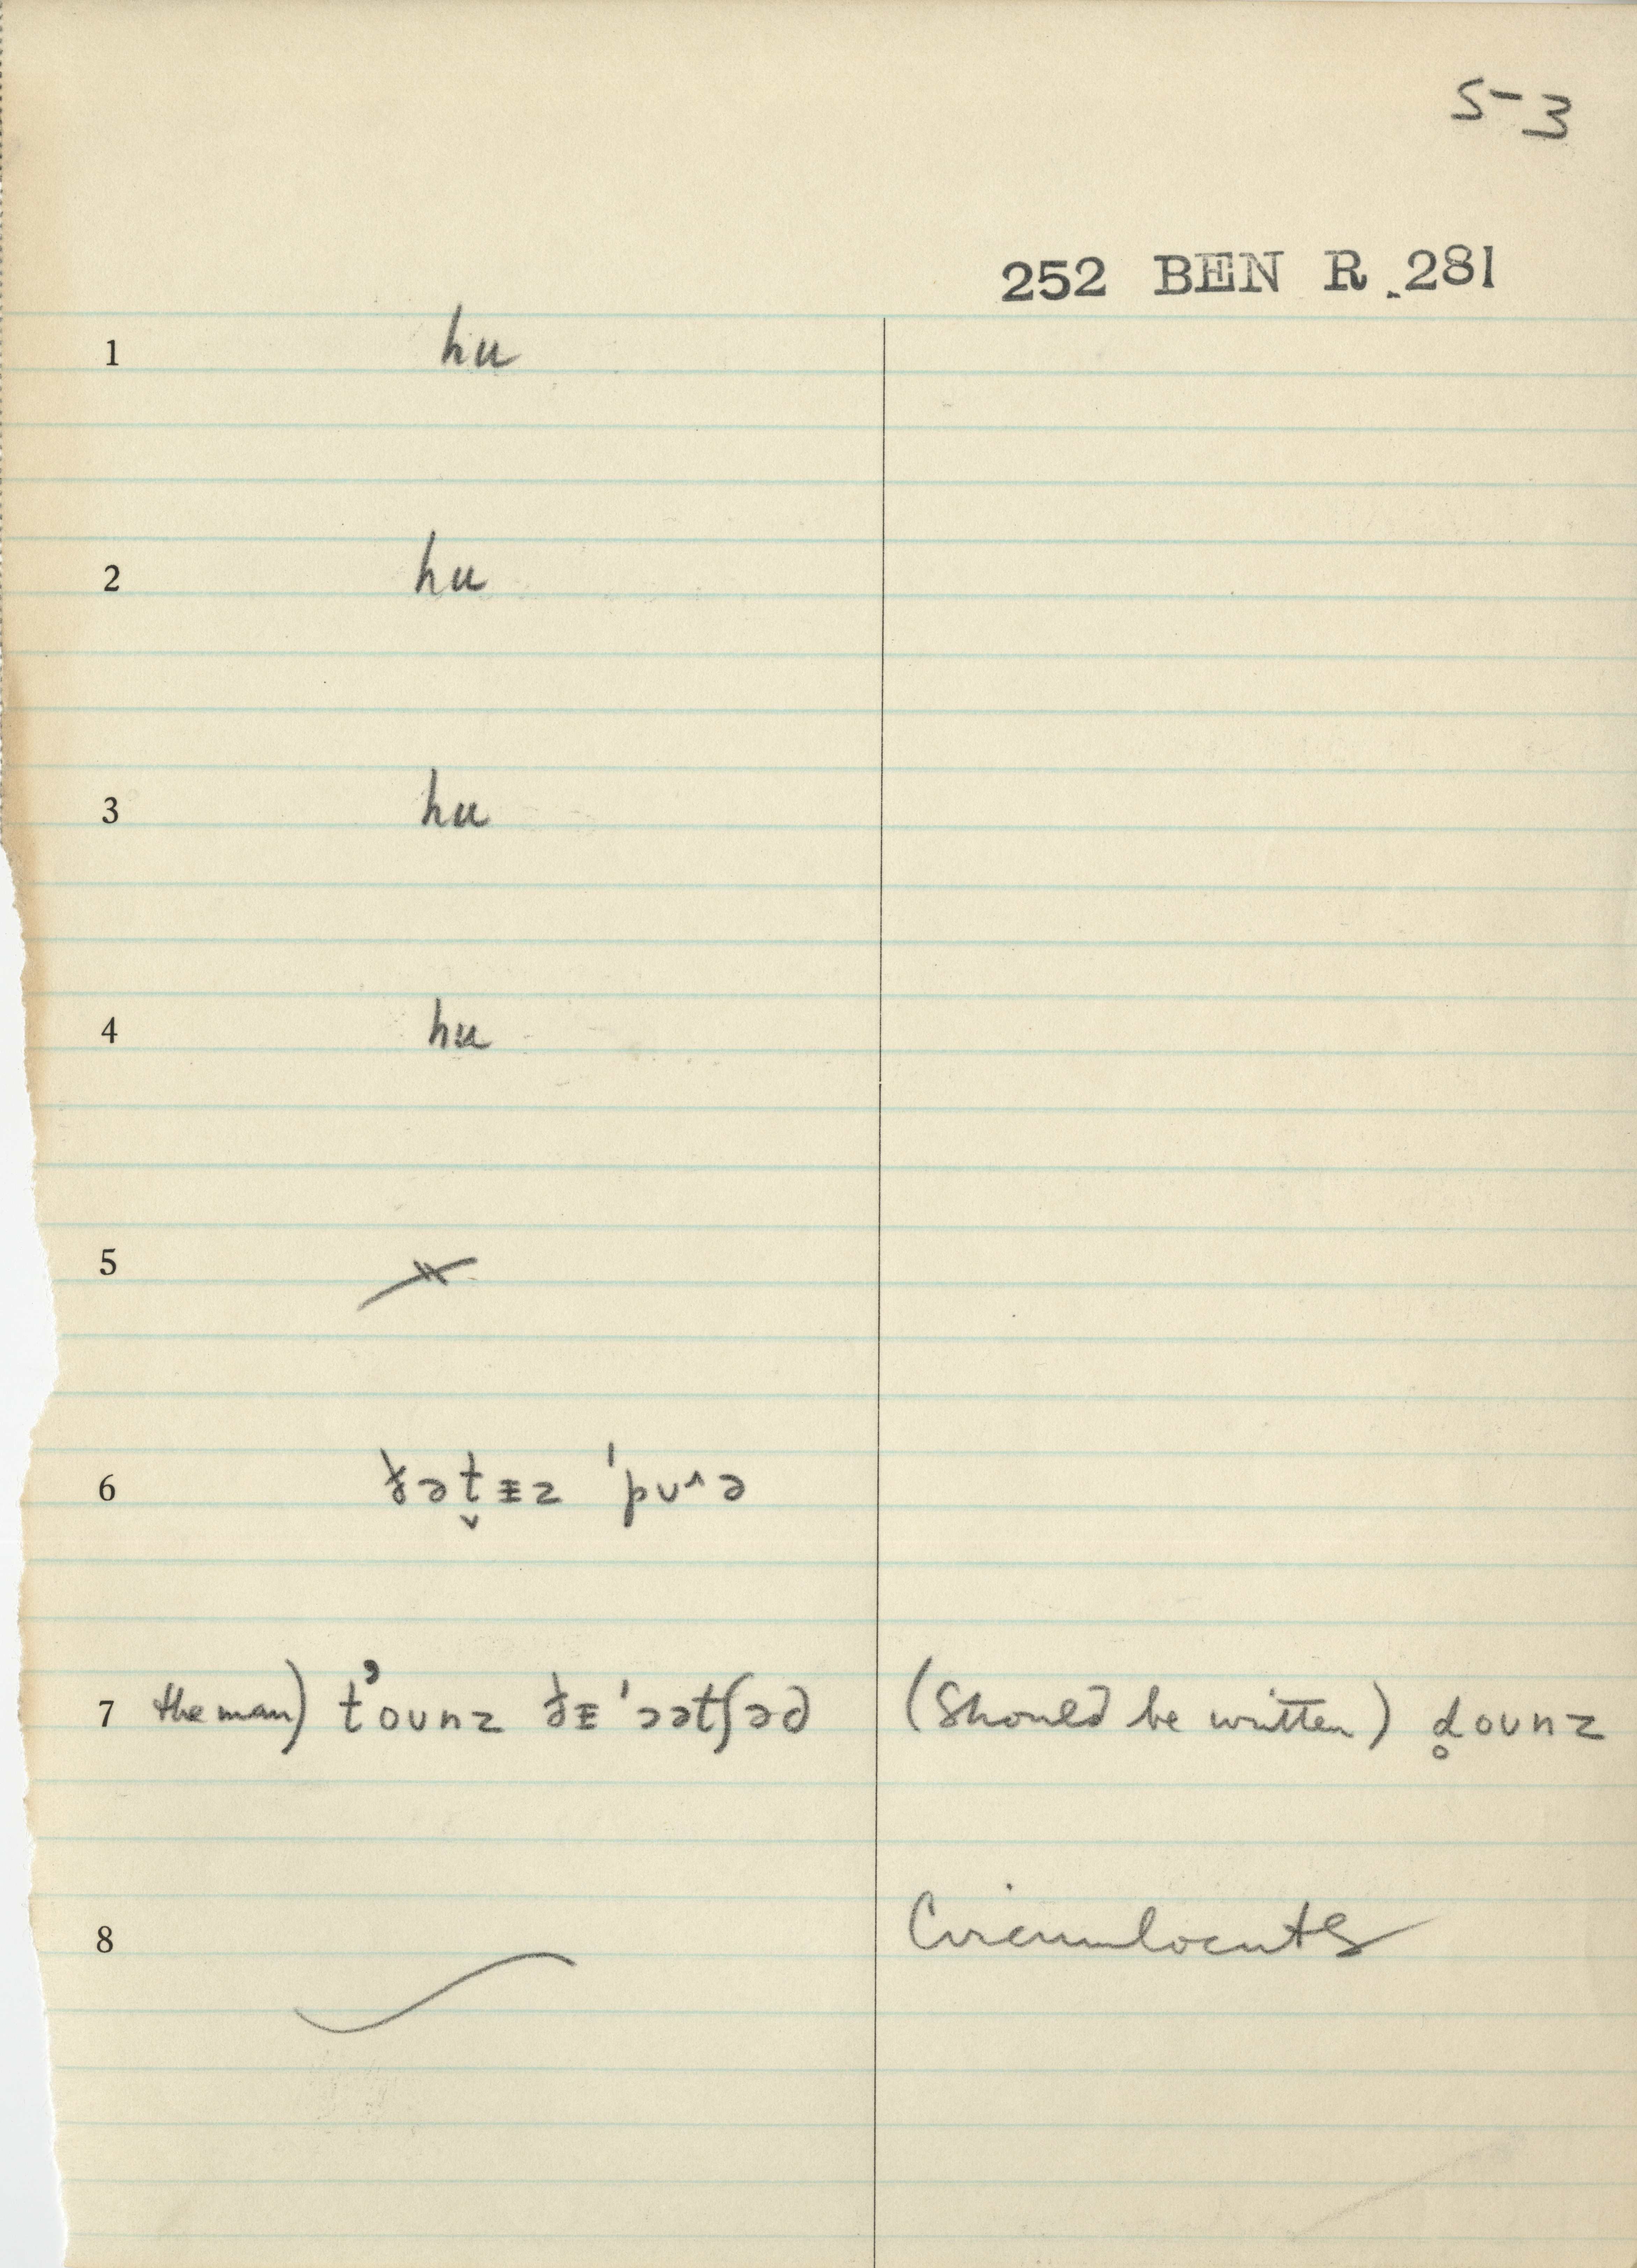 5-3
252 BEN R. 281
1 hu
2 hu
3 hu
4 hu
5
6 ðət̬ᵻz ˈpuʌə
7 the man) t̓ounz ðᵻ ˈɔətʃəd (Should be written) d̥ounz
8 Circumlocuts